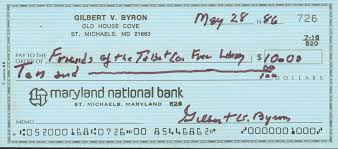 GILBERT V. BYRON
OLD HOUSE COVE
ST. MICHAELS, MD 21663
May 28 1986 726
7-10
520
PAY TO THE ORDER OF Friends of the Talbot Co. Free Library $10.00
Ten and 00/100 DOLLARS
maryland national bank
ST. MICHAELS, MARYLAND 526
MEMO Gilbert V. Byron